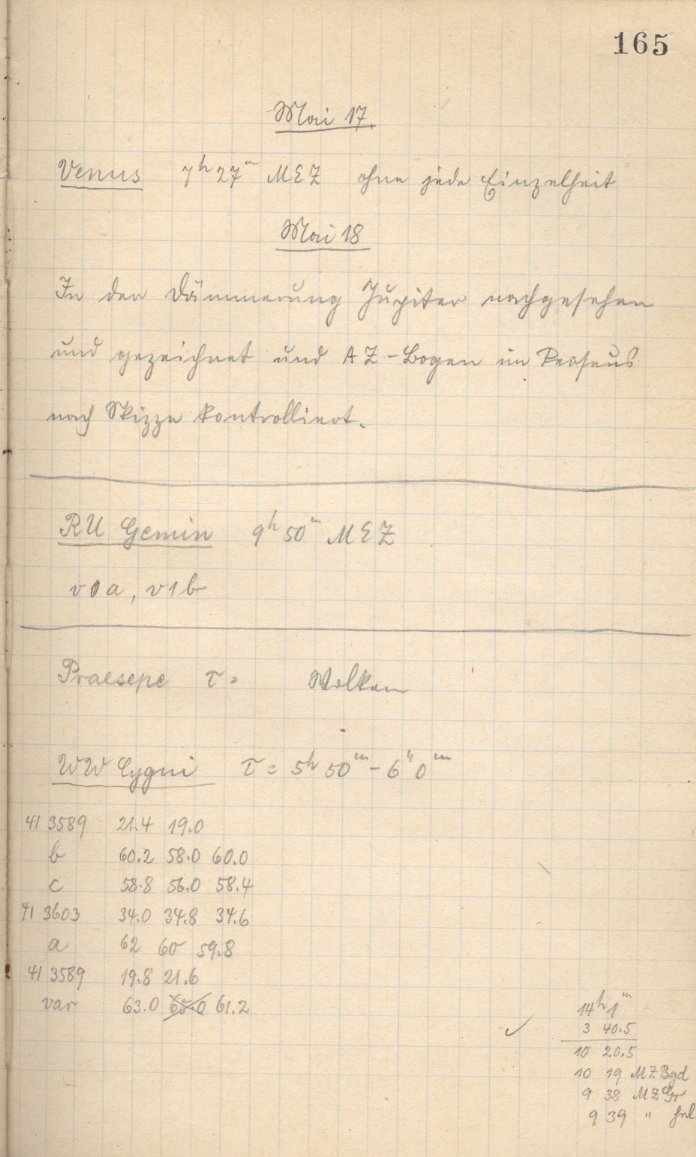 165
Mai 17.
Venus 7h 27m MEZ ohne jede Einzelheit
Mai 18
In der Dämmerung Jupiter nachgesehen
und gezeichnet und AZ-Bogen im Perseus
nach Skizze kontrolliert.
RU Gemin 9h 50m MEZ
v0a, v1b
Praesepe τ = Wolken
WW Cygni τ = 5h 50m - 6h 0m
41 3589 21.4 19.0
b 60.2 58.0 60.0
c 58.8 56.0 58.4
41 3603 34.0 34.8 34.6
a 62 60 59.8
41 3589 19.8 21.6
var 63.0 65.0 61.2
14h 1m
3 40.5
10 20.5
10 19 MZ Bgd
9 38 MZ Gr
9 39 "